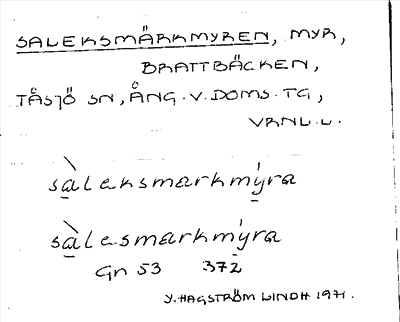 SALEKSMÄRKMYREN, MYR,
BRATTBÄCKEN,
TÅSJÖ SN, ÅNG. V. DOMS. TG,
VRNL. L.
sàleksmarkmýra
sàlesmarkmýra
Gn 53 372
Y. HAGSTRÖM LINDH 1971.